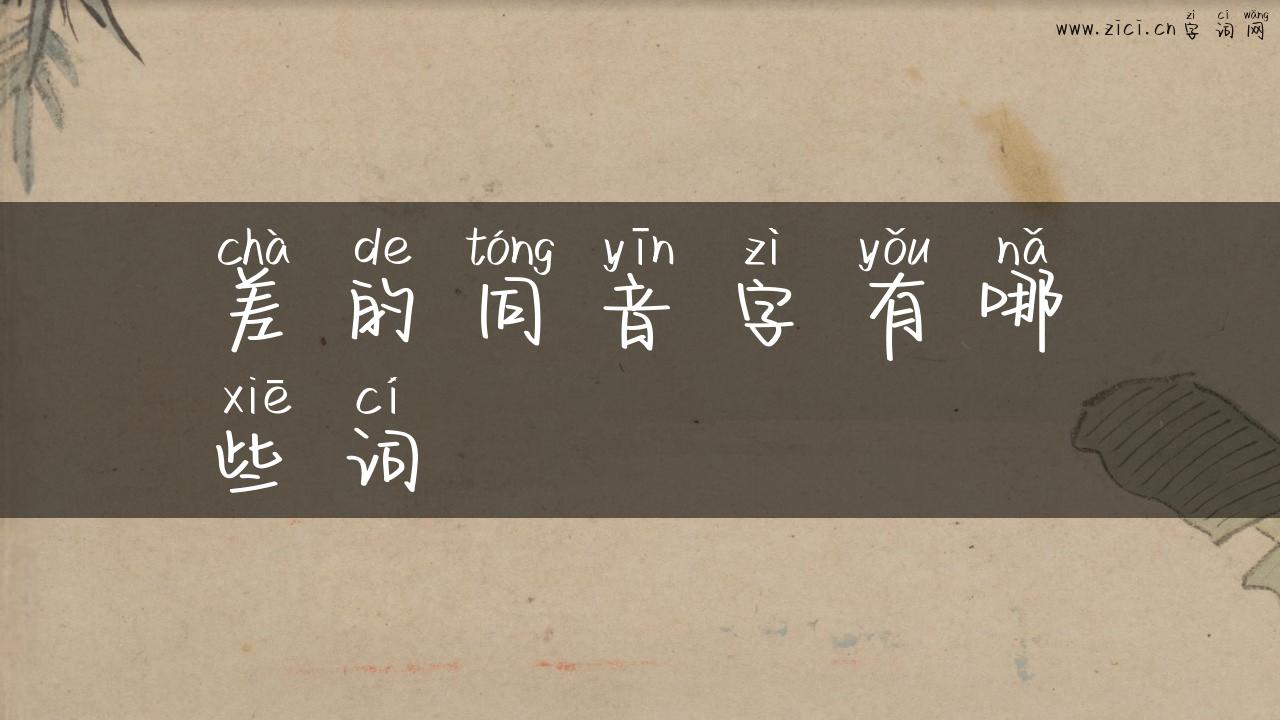 zì cí wǎng
www.zici.cn 字词网
chà de tóng yīn zì yǒu nǎ
差的同音字有哪
xiē cí
些词